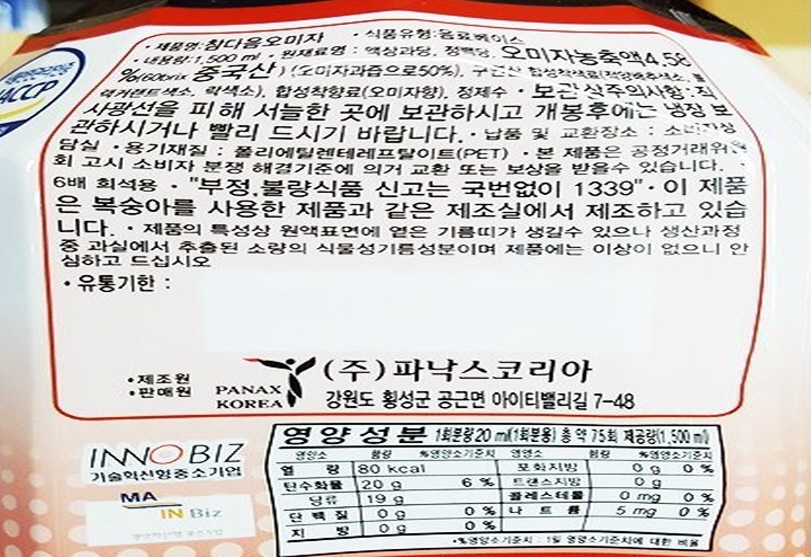 · 제품명:참다음오미자 · 식품유형:음료베이스
· 내용량:1,500 ml · 원재료명 : 액상과당, 정백당, 오미자농축액4.58
%(60brix 중국산) (오미자과즙으로50%), 구연산 합성착색료(적양배추색소,
락색소), 합성착향료(오미자향), 정제수 · 보관상주의사항: 직
사광선을 피해 서늘한 곳에 보관하시고 개봉후에는 냉장 보
관하시거나 빨리 드시기 바랍니다. · 납품 및 교환장소 : 소비자상
담실 · 용기재질 : 폴리에틸렌테레프탈이트(PET) · 본 제품은 공정거래위원
회 고시 소비자 분쟁 해결기준에 의거 교환 또는 보상을 받을수 있습니다. ·
6배 희석용 · "부정.불량식품 신고는 국번없이 1339" · 이 제품
은 복숭아를 사용한 제품과 같은 제조실에서 제조하고 있습
니다. · 제품의 특성상 원액표면에 옅은 기름띠가 생길수 있으나 생산과정
중 과실에서 추출된 소량의 식물성기름성분이며 제품에는 이상이 없으니 안
심하고 드십시오
· 유통기한 :
ACCP
· 제조원
· 판매원
PANAX
KOREA
(주)파낙스코리아
강원도 횡성군 공근면 아이티밸리길 7-48
INNOBIZ
기술혁신형중소기업
MA
IN Biz
영양성분 1회분량20 ml(1회분용) 총 약 75회 제공량(1,500 ml)
영양소 함량 %영양소기준치 영양소 함량 %영양소기준치
열 량 80 kcal 포화지방 0 g 0 %
탄수화물 20 g 6 % 트랜스지방 0 g
당류 19 g 콜레스테롤 0 mg 0 %
단백질 0 g 0 % 나트륨 5 mg 0 %
지 방 0 g 0 %
·%영양소기준치 : 1일 영양소기준치에 대한 비율